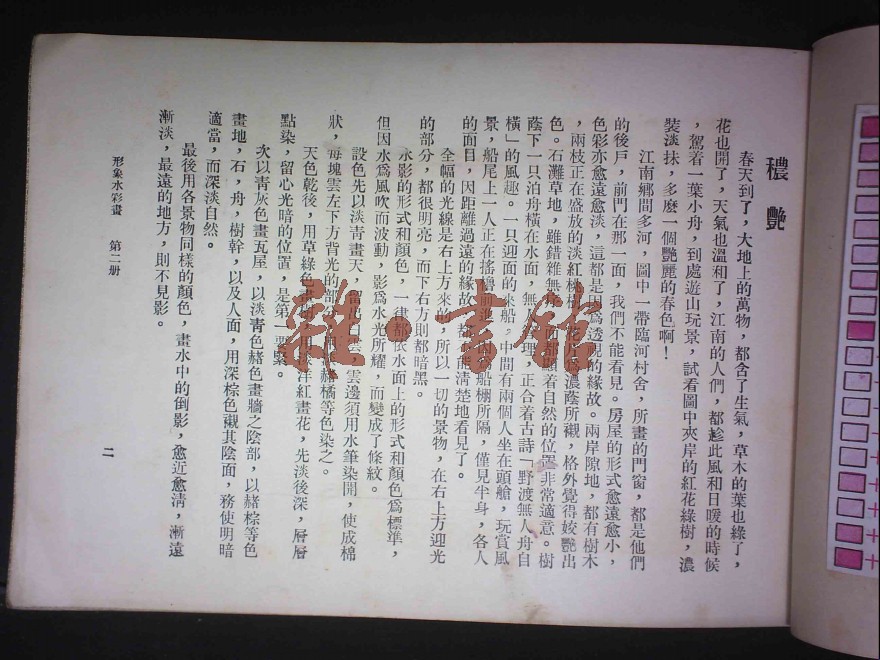 穠艷
春天到了，大地上的萬物，都含了生氣，草木的葉也綠了，
花也開了，天氣也溫和了，江南的人們，都趁此風和日暖的時候
，駕着一葉小舟，到處遊山玩景，試看圖中夾岸的紅花綠樹，濃
裝淡抹，多麼一個艷麗的春色啊！
江南鄉間多河，圖中一帶臨河村舍，所畫的門窗，都是他們
的後戶，前門在那一面，我們不能看見。房屋的形式愈遠愈小，
色彩亦愈遠愈淡，這都是因爲透視的緣故。兩岸隙地，都有樹木
，兩枝正在盛放的淡紅桃樹，濃蔭所襯，格外覺得姣艷出
色。石灘草地，雖錯雜無，都顯着自然的位置非常適意。樹
蔭下一只泊舟橫在水面，無人理，正合着古詩「野渡無人舟自
橫」的風趣。一只迎面的來船，中間有兩個人坐在頭艙，玩賞風
景，船尾上一人正在搖櫓前進，船棚所隔，僅見半身，各人
的面目，因距離過遠的緣故，都不能清楚地看見了。
全幅的光線是右上方來的，所以一切的景物，在右上方迎光
的部分，都很明亮，而下右方則都暗黑。
水影的形式和顏色，一律都依水面上的形式和顏色爲標準，
但因水爲風吹而波動，影爲水光所耀，而變成了條紋。
設色先以淡靑畫天，留出白雲，雲邊須用水筆染開，使成棉
狀，每塊雲左下方背光的部分，赭橘等色染之。
天色乾後，用草綠色畫，用淡洋紅畫花，先淡後深，層層
點染，留心光暗的位置，是第一要緊。
次以靑灰色畫瓦屋，以淡靑色赭色畫牆之陰部，以赭棕等色
畫地，石，舟，樹幹，以及人面，用深棕色襯其陰面，務使明暗
適當，而深淡自然。
最後用各景物同樣的顏色，畫水中的倒影，愈近愈淸，漸遠
漸淡，最遠的地方，則不見影。
形象水彩畫　第二册
二
雜·書館